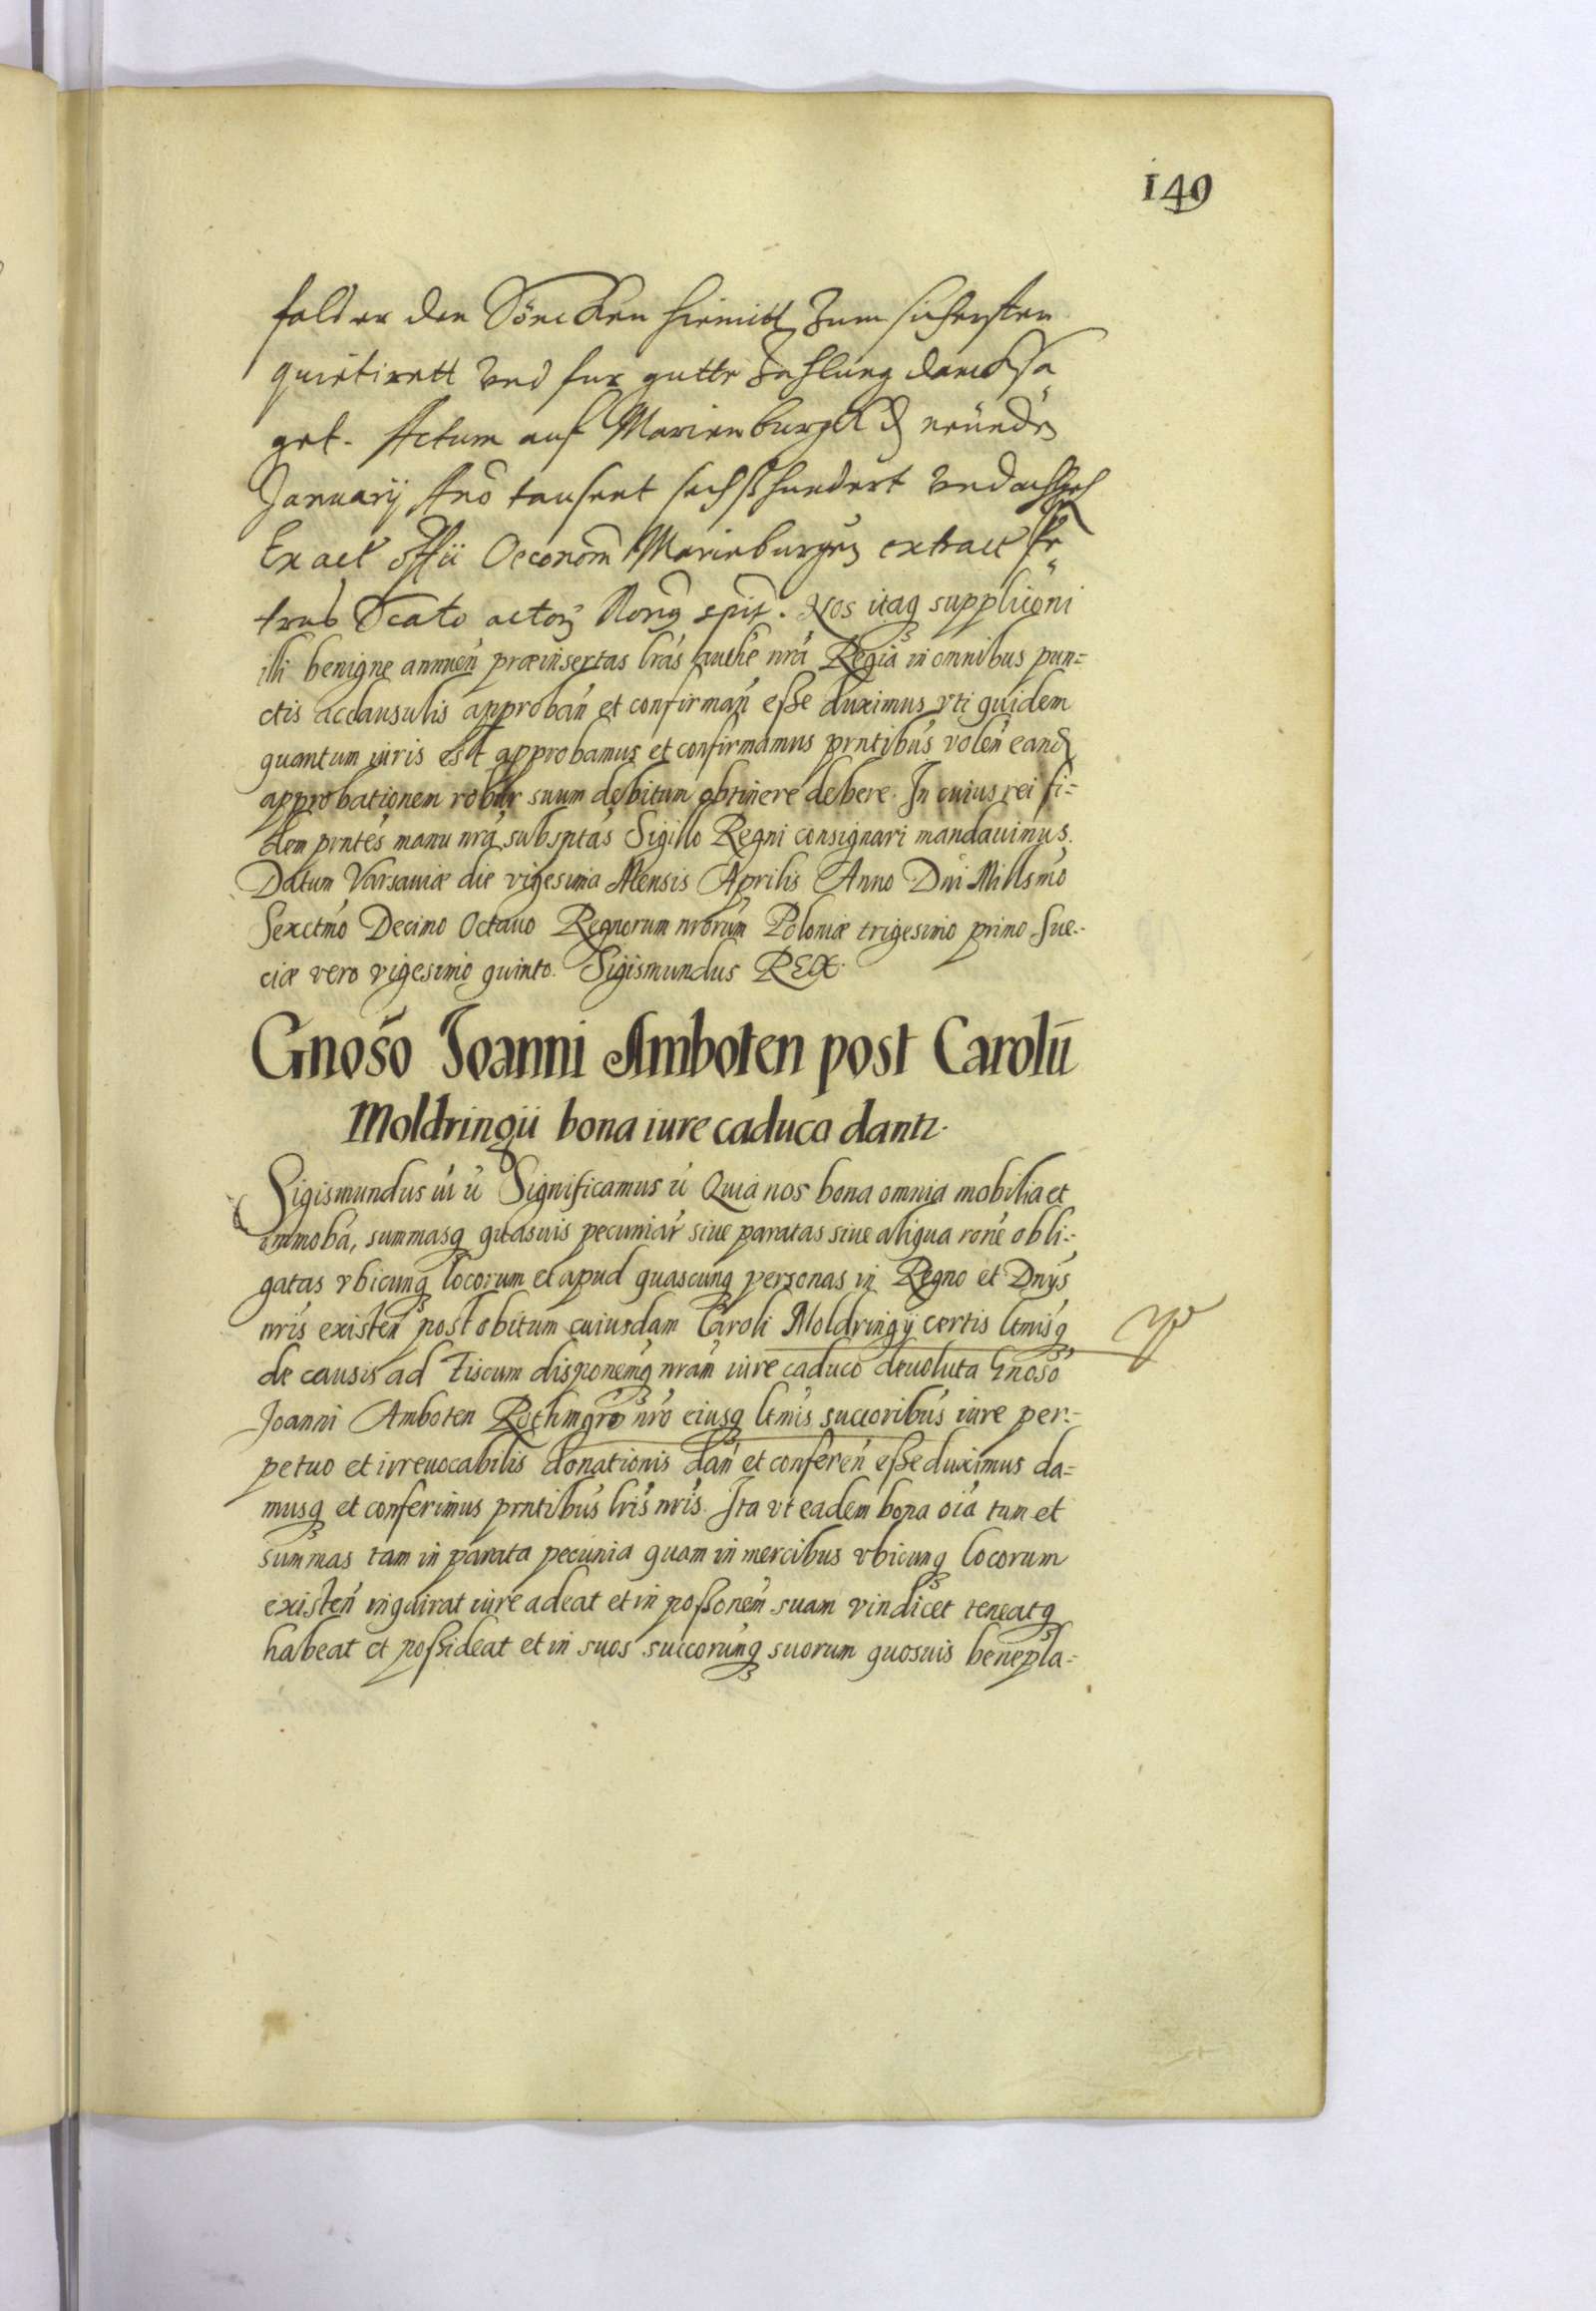 149
quietirett vnd fur gutte Zahlung dancksa
get. Actum auf Marienburgk d neunden
January Ano tausent sechßhundert vnd achtzeh
Ex act offii Oeconom Marieburgen extract
Nos itaq suppliconi
illi benigne annuen̄ præinsertas lras authe nra Regia in omnibus pun=
ctis ac clausulis approban̄ et confirman̄ eße duximus vti quidem
quantum iuris est approbamus et confirmamus prntibus volen̄ eand
approbationem robur suum debitum obtinere debere. In cuius rei fi=
dem prntes manu nra subsptas Sigillo Regni consignari mandauimus.
Datum Varsauiæ die vigesima Mensis Aprilis Anno Dni Millsmo
Sexctmo Decimo Octauo Regnorum nrorum Poloniæ trigesimo primo Sue-
ciæ vero vigesimo quinto. Sigismundus REX.
Gnoso Joanni Amboten post Carolū
Moldringii bona iure caduco dantr.
Sigismundus iii ꝛc Significamus ꝛc Quia nos bona omnia mobilia et
immoba, summasq quasuis pecuniar siue paratas siue aliqua rone obli-
gatas vbicunq locorum et apud quascunq personas in Regno et Dnys
nris existen̄ post obitum cuiusdam Caroli Moldringij certis ltmisq
de causis ad Fiscum disponemq nram iure caduco deuoluta Gnoso
Joanni Amboten Rothmgro nro eiusq ltmis succoribus iure per-
petuo et irreuocabilis donationis dan̄ et conferen̄ eße duximus da=
musq et conferimus prntibus lris nris. Ita vt eadem bona oia tum et
summas tam in parata pecunia quam in mercibus vbicunq locorum
existen̄ inquirat iure adeat et in poßonem suam vindicet teneatq
habeat et poßideat et in suos succorumq suorum quosuis benepla=